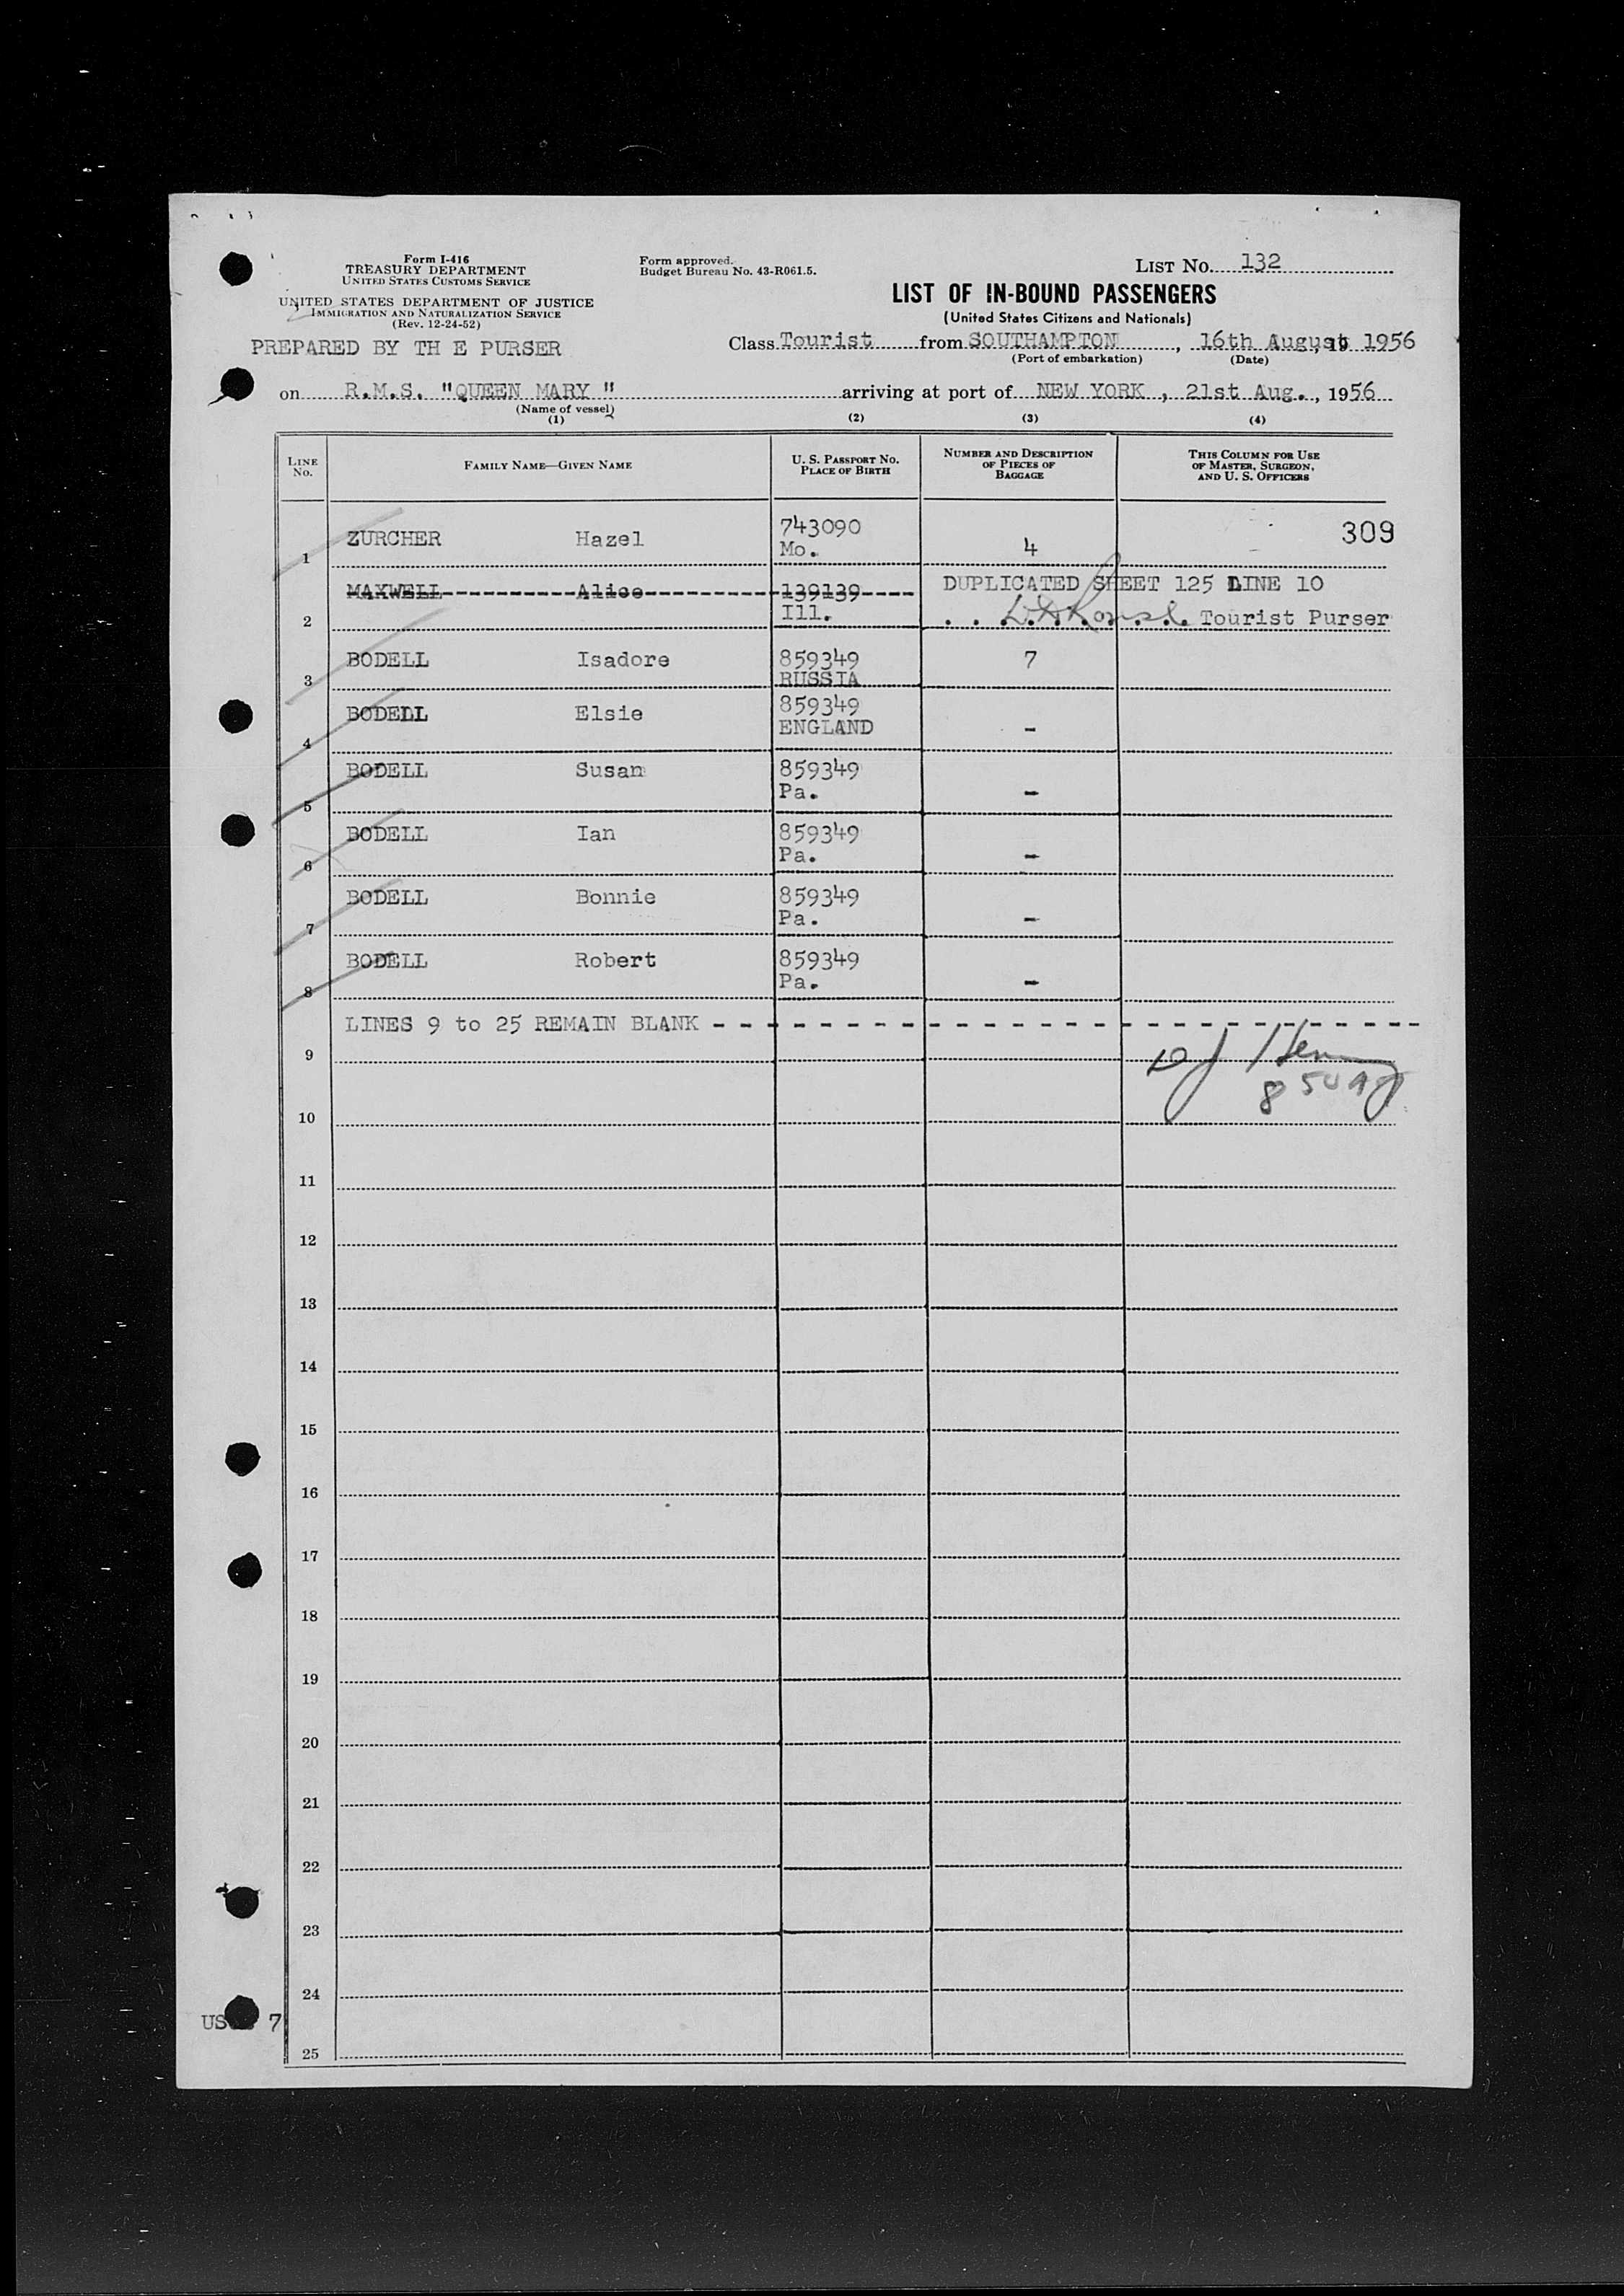 Form I-416
TREASURY DEPARTMENT
UNITED STATES CUSTOMS SERVICE
UNITED STATES DEPARTMENT OF JUSTICE
IMMIGRATION AND NATURALIZATION SERVICE
(Rev. 12-24-52)
Form approved.
Budget Bureau No. 43-R061.5.
LIST NO. 132
LIST OF IN-BOUND PASSENGERS
(United States Citizens and Nationals)
PREPARED BY TH E PURSER
Class Tourist from SOUTHAMPTON, 16th August, 19 1956
(Port of embarkation) (Date)
on R.M.S. "QUEEN MARY " arriving at port of NEW YORK, 21st Aug., 1956
(Name of vessel)
(1) (2) (3) (4)
LINE NO.
FAMILY NAME—GIVEN NAME
U. S. PASSPORT NO.
PLACE OF BIRTH
NUMBER AND DESCRIPTION
OF PIECES OF
BAGGAGE
THIS COLUMN FOR USE
OF MASTER, SURGEON,
AND U. S. OFFICERS
1 ZURCHER Hazel 743090 4 309
Mo.
2 MAXWELL Alice 139139 DUPLICATED SHEET 125 LINE 10
Ill. Tourist Purser
3 BODELL Isadore 859349 7
RUSSIA
4 BODELL Elsie 859349 -
ENGLAND
5 BODELL Susan 859349 -
Pa.
6 BODELL Ian 859349 -
Pa.
7 BODELL Bonnie 859349 -
Pa.
8 BODELL Robert 859349 -
Pa.
LINES 9 to 25 REMAIN BLANK - - - - - - - - - - - - - - - - - - - - - - - - -
9
10
11
12
13
14
15
16
17
18
19
20
21
22
23
24
US 7
25